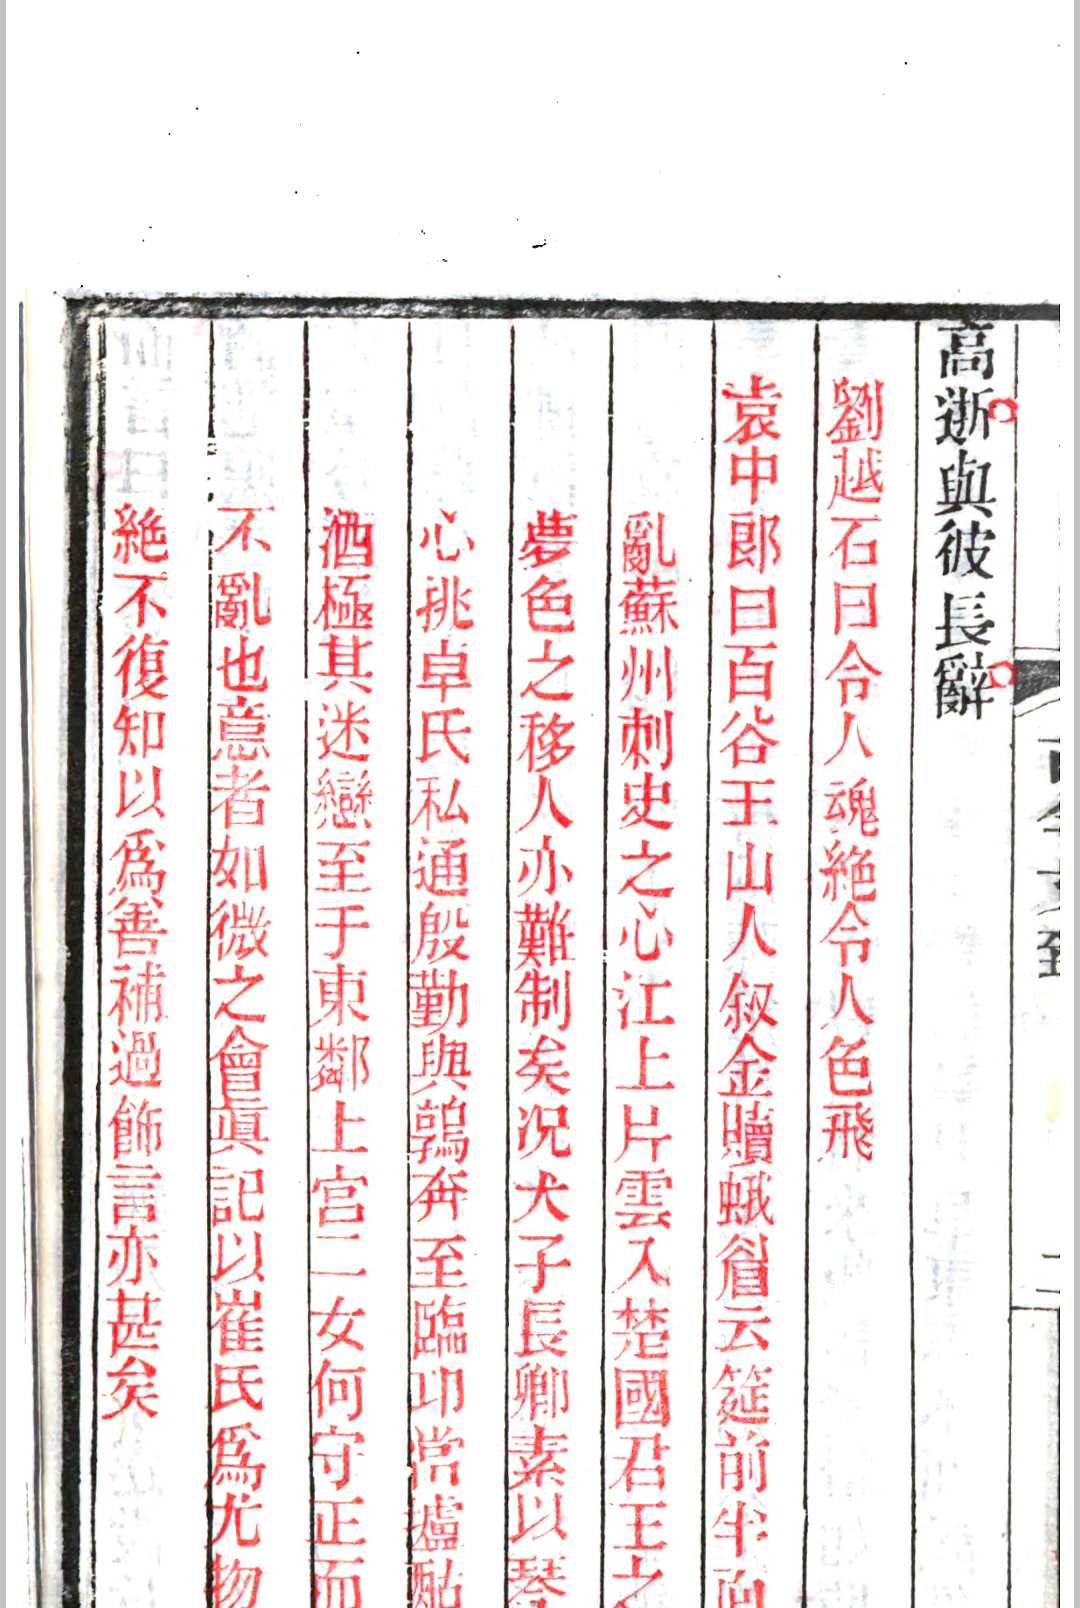 高逝與彼長辭
劉越石曰令人魂絶令人色飛
袁中郎曰百谷王山人叙金贖蛾眉云筵前半向
亂蘇州刺史之心江上片雲入楚國君王之
夢色之移人亦難制矣况犬子長卿素以琴
心挑卓氏私通殷勤與鶉奔至臨邛當壚酤
酒極其迷戀至于東鄰上宫二女何守正而
不亂也意者如微之會眞記以崔氏爲尤物
絶不復知以爲善補過飾言亦甚矣